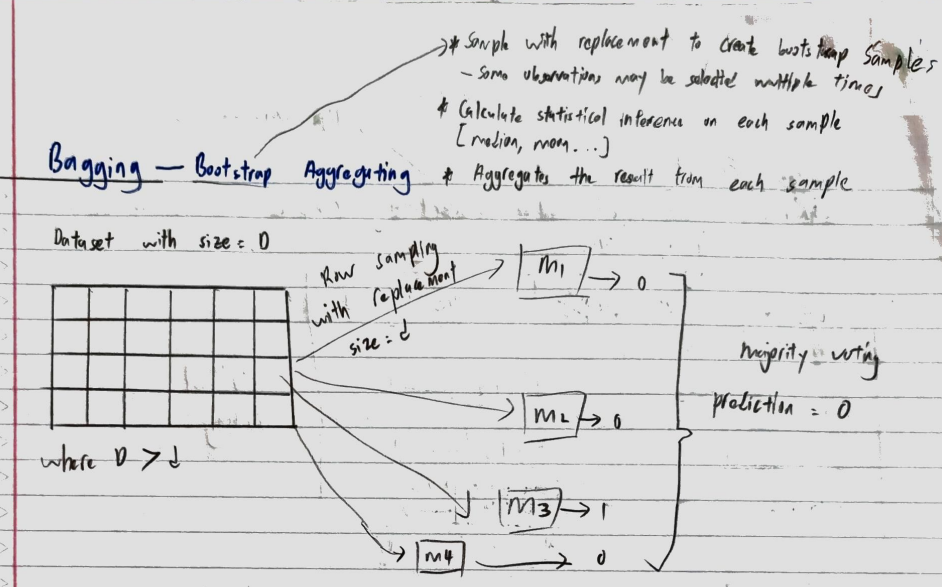 * Sample with replacement to create bootstrap samples
- Some observations may be selected multiple times
* Calculate statistical inference on each sample
[median, mean...]
Bagging — Bootstrap Aggregating
* Aggregates the result from each sample
Dataset with size = D
Row sampling
with replacement
size = d
where D > d
M1 → 0
M2 → 0
M3 → 1
M4 → 0
Majority voting
prediction = 0